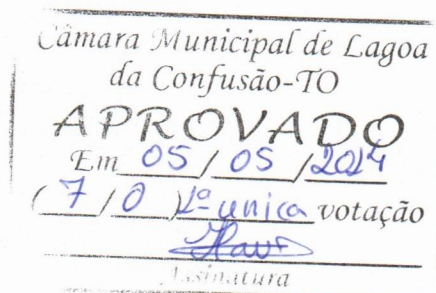 Câmara Municipal de Lagoa
da Confusão-TO
APROVADO
Em 05 / 05 / 2024
( 7 / 0 ) 1ª unica votação
Assinatura